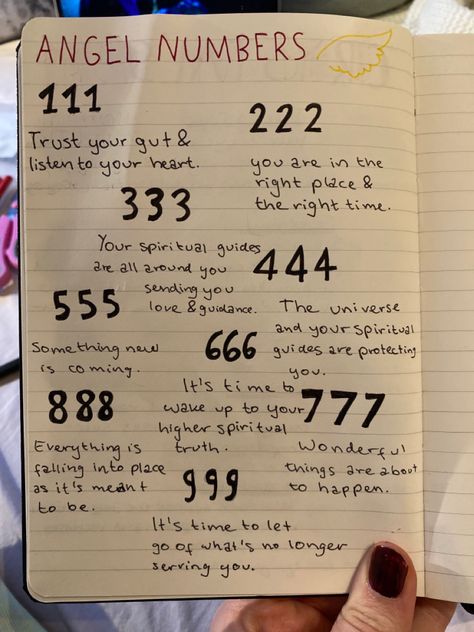 ANGEL NUMBERS
111
Trust your gut &
listen to your heart.
222
you are in the
right place &
the right time.
333
Your spiritual guides
are all around you
sending you
love & guidance.
444
The universe
and your spiritual
guides are protecting
you.
555
Something new
is coming.
666
It's time to
wake up to your
higher spiritual
truth.
777
Wonderful
things are about
to happen.
888
Everything is
falling into place
as it's meant
to be.
999
It's time to let
go of what's no longer
serving you.